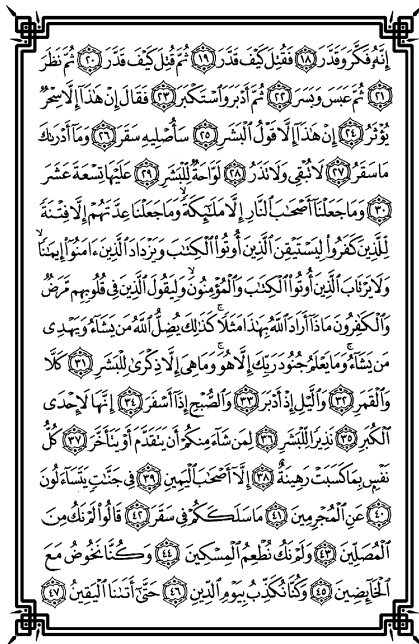 إِنَّهُۥ فَكَّرَ وَقَدَّرَ ﴿١٨﴾ فَقُتِلَ كَيْفَ قَدَّرَ ﴿١٩﴾ ثُمَّ قُتِلَ كَيْفَ قَدَّرَ ﴿٢٠﴾ ثُمَّ نَظَرَ
﴿٢١﴾ ثُمَّ عَبَسَ وَبَسَرَ ﴿٢٢﴾ ثُمَّ أَدْبَرَ وَٱسْتَكْبَرَ ﴿٢٣﴾ فَقَالَ إِنْ هَٰذَآ إِلَّا سِحْرٌ
يُؤْثَرُ ﴿٢٤﴾ إِنْ هَٰذَآ إِلَّا قَوْلُ ٱلْبَشَرِ ﴿٢٥﴾ سَأُصْلِيهِ سَقَرَ ﴿٢٦﴾ وَمَآ أَدْرَىٰكَ
مَا سَقَرُ ﴿٢٧﴾ لَا تُبْقِى وَلَا تَذَرُ ﴿٢٨﴾ لَوَّاحَةٌ لِّلْبَشَرِ ﴿٢٩﴾ عَلَيْهَا تِسْعَةَ عَشَرَ
﴿٣٠﴾ وَمَا جَعَلْنَآ أَصْحَٰبَ ٱلنَّارِ إِلَّا مَلَٰٓئِكَةً وَمَا جَعَلْنَا عِدَّتَهُمْ إِلَّا فِتْنَةً
لِّلَّذِينَ كَفَرُوا۟ لِيَسْتَيْقِنَ ٱلَّذِينَ أُوتُوا۟ ٱلْكِتَٰبَ وَيَزْدَادَ ٱلَّذِينَ ءَامَنُوٓا۟ إِيمَٰنًا
وَلَا يَرْتَابَ ٱلَّذِينَ أُوتُوا۟ ٱلْكِتَٰبَ وَٱلْمُؤْمِنُونَ وَلِيَقُولَ ٱلَّذِينَ فِى قُلُوبِهِم مَّرَضٌ
وَٱلْكَٰفِرُونَ مَاذَآ أَرَادَ ٱللَّهُ بِهَٰذَا مَثَلًا كَذَٰلِكَ يُضِلُّ ٱللَّهُ مَن يَشَآءُ وَيَهْدِى
مَن يَشَآءُ وَمَا يَعْلَمُ جُنُودَ رَبِّكَ إِلَّا هُوَ وَمَا هِىَ إِلَّا ذِكْرَىٰ لِلْبَشَرِ ﴿٣١﴾ كَلَّا
وَٱلْقَمَرِ ﴿٣٢﴾ وَٱلَّيْلِ إِذْ أَدْبَرَ ﴿٣٣﴾ وَٱلصُّبْحِ إِذَآ أَسْفَرَ ﴿٣٤﴾ إِنَّهَا لَإِحْدَى
ٱلْكُبَرِ ﴿٣٥﴾ نَذِيرًا لِّلْبَشَرِ ﴿٣٦﴾ لِمَن شَآءَ مِنكُمْ أَن يَتَقَدَّمَ أَوْ يَتَأَخَّرَ ﴿٣٧﴾ كُلُّ
نَفْسٍۭ بِمَا كَسَبَتْ رَهِينَةٌ ﴿٣٨﴾ إِلَّآ أَصْحَٰبَ ٱلْيَمِينِ ﴿٣٩﴾ فِى جَنَّٰتٍ يَتَسَآءَلُونَ
﴿٤٠﴾ عَنِ ٱلْمُجْرِمِينَ ﴿٤١﴾ مَا سَلَكَكُمْ فِى سَقَرَ ﴿٤٢﴾ قَالُوا۟ لَمْ نَكُ مِنَ
ٱلْمُصَلِّينَ ﴿٤٣﴾ وَلَمْ نَكُ نُطْعِمُ ٱلْمِسْكِينَ ﴿٤٤﴾ وَكُنَّا نَخُوضُ مَعَ
ٱلْخَآئِضِينَ ﴿٤٥﴾ وَكُنَّا نُكَذِّبُ بِيَوْمِ ٱلدِّينِ ﴿٤٦﴾ حَتَّىٰٓ أَتَىٰنَا ٱلْيَقِينُ ﴿٤٧﴾